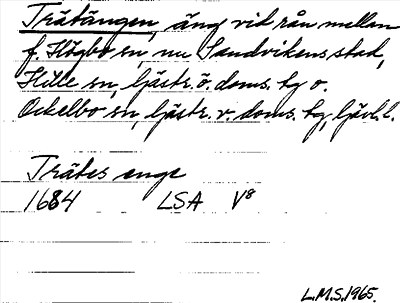 Trätängen, äng vid rån mellan
f. Högbo sn, nu Sandvikens stad,
Hille sn, Gästr. ö. doms. hg o.
Ockelbo sn, Gästr. v. doms. hg, Gävl. l.
Trätes enge
1684 LSA V8
L.M.S. 1965.